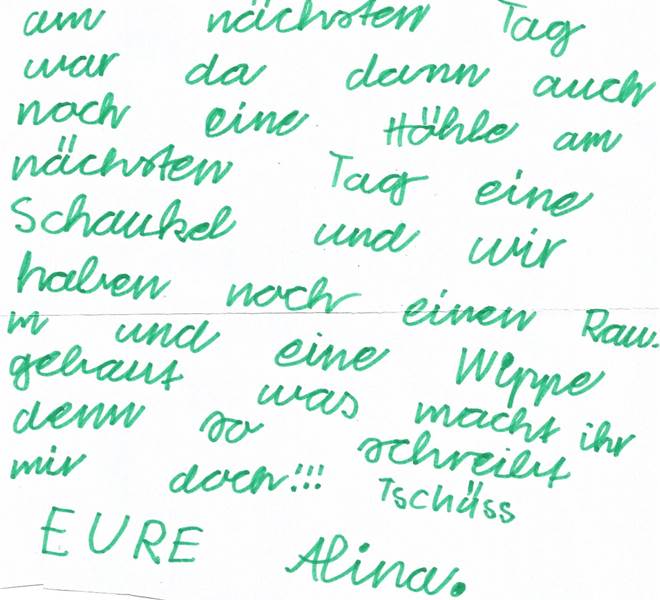 am nächsten Tag
war da dann auch
noch eine Höhle am
nächsten Tag eine
Schaukel und wir
haben noch einen Rau-
m und eine Wippe
gebaut was macht ihr
denn so schreibt
mir doch!!! Tschüss
EURE Alina.